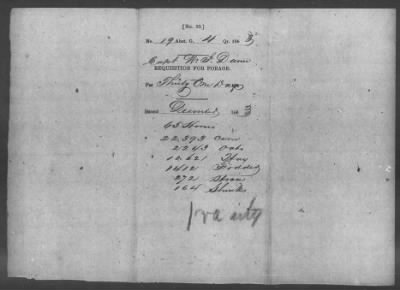 [No. 33.]
No. 19 Abst. G, 4 Qr. 186 3
Capt W. J.
REQUISITION FOR FORAGE.
For Thirty One Days
Issued December 186 3
63 Horses
22,393 Corn
2243 Oats
12,621 Hay
1412 Fodder
272 Straw
164 Shucks